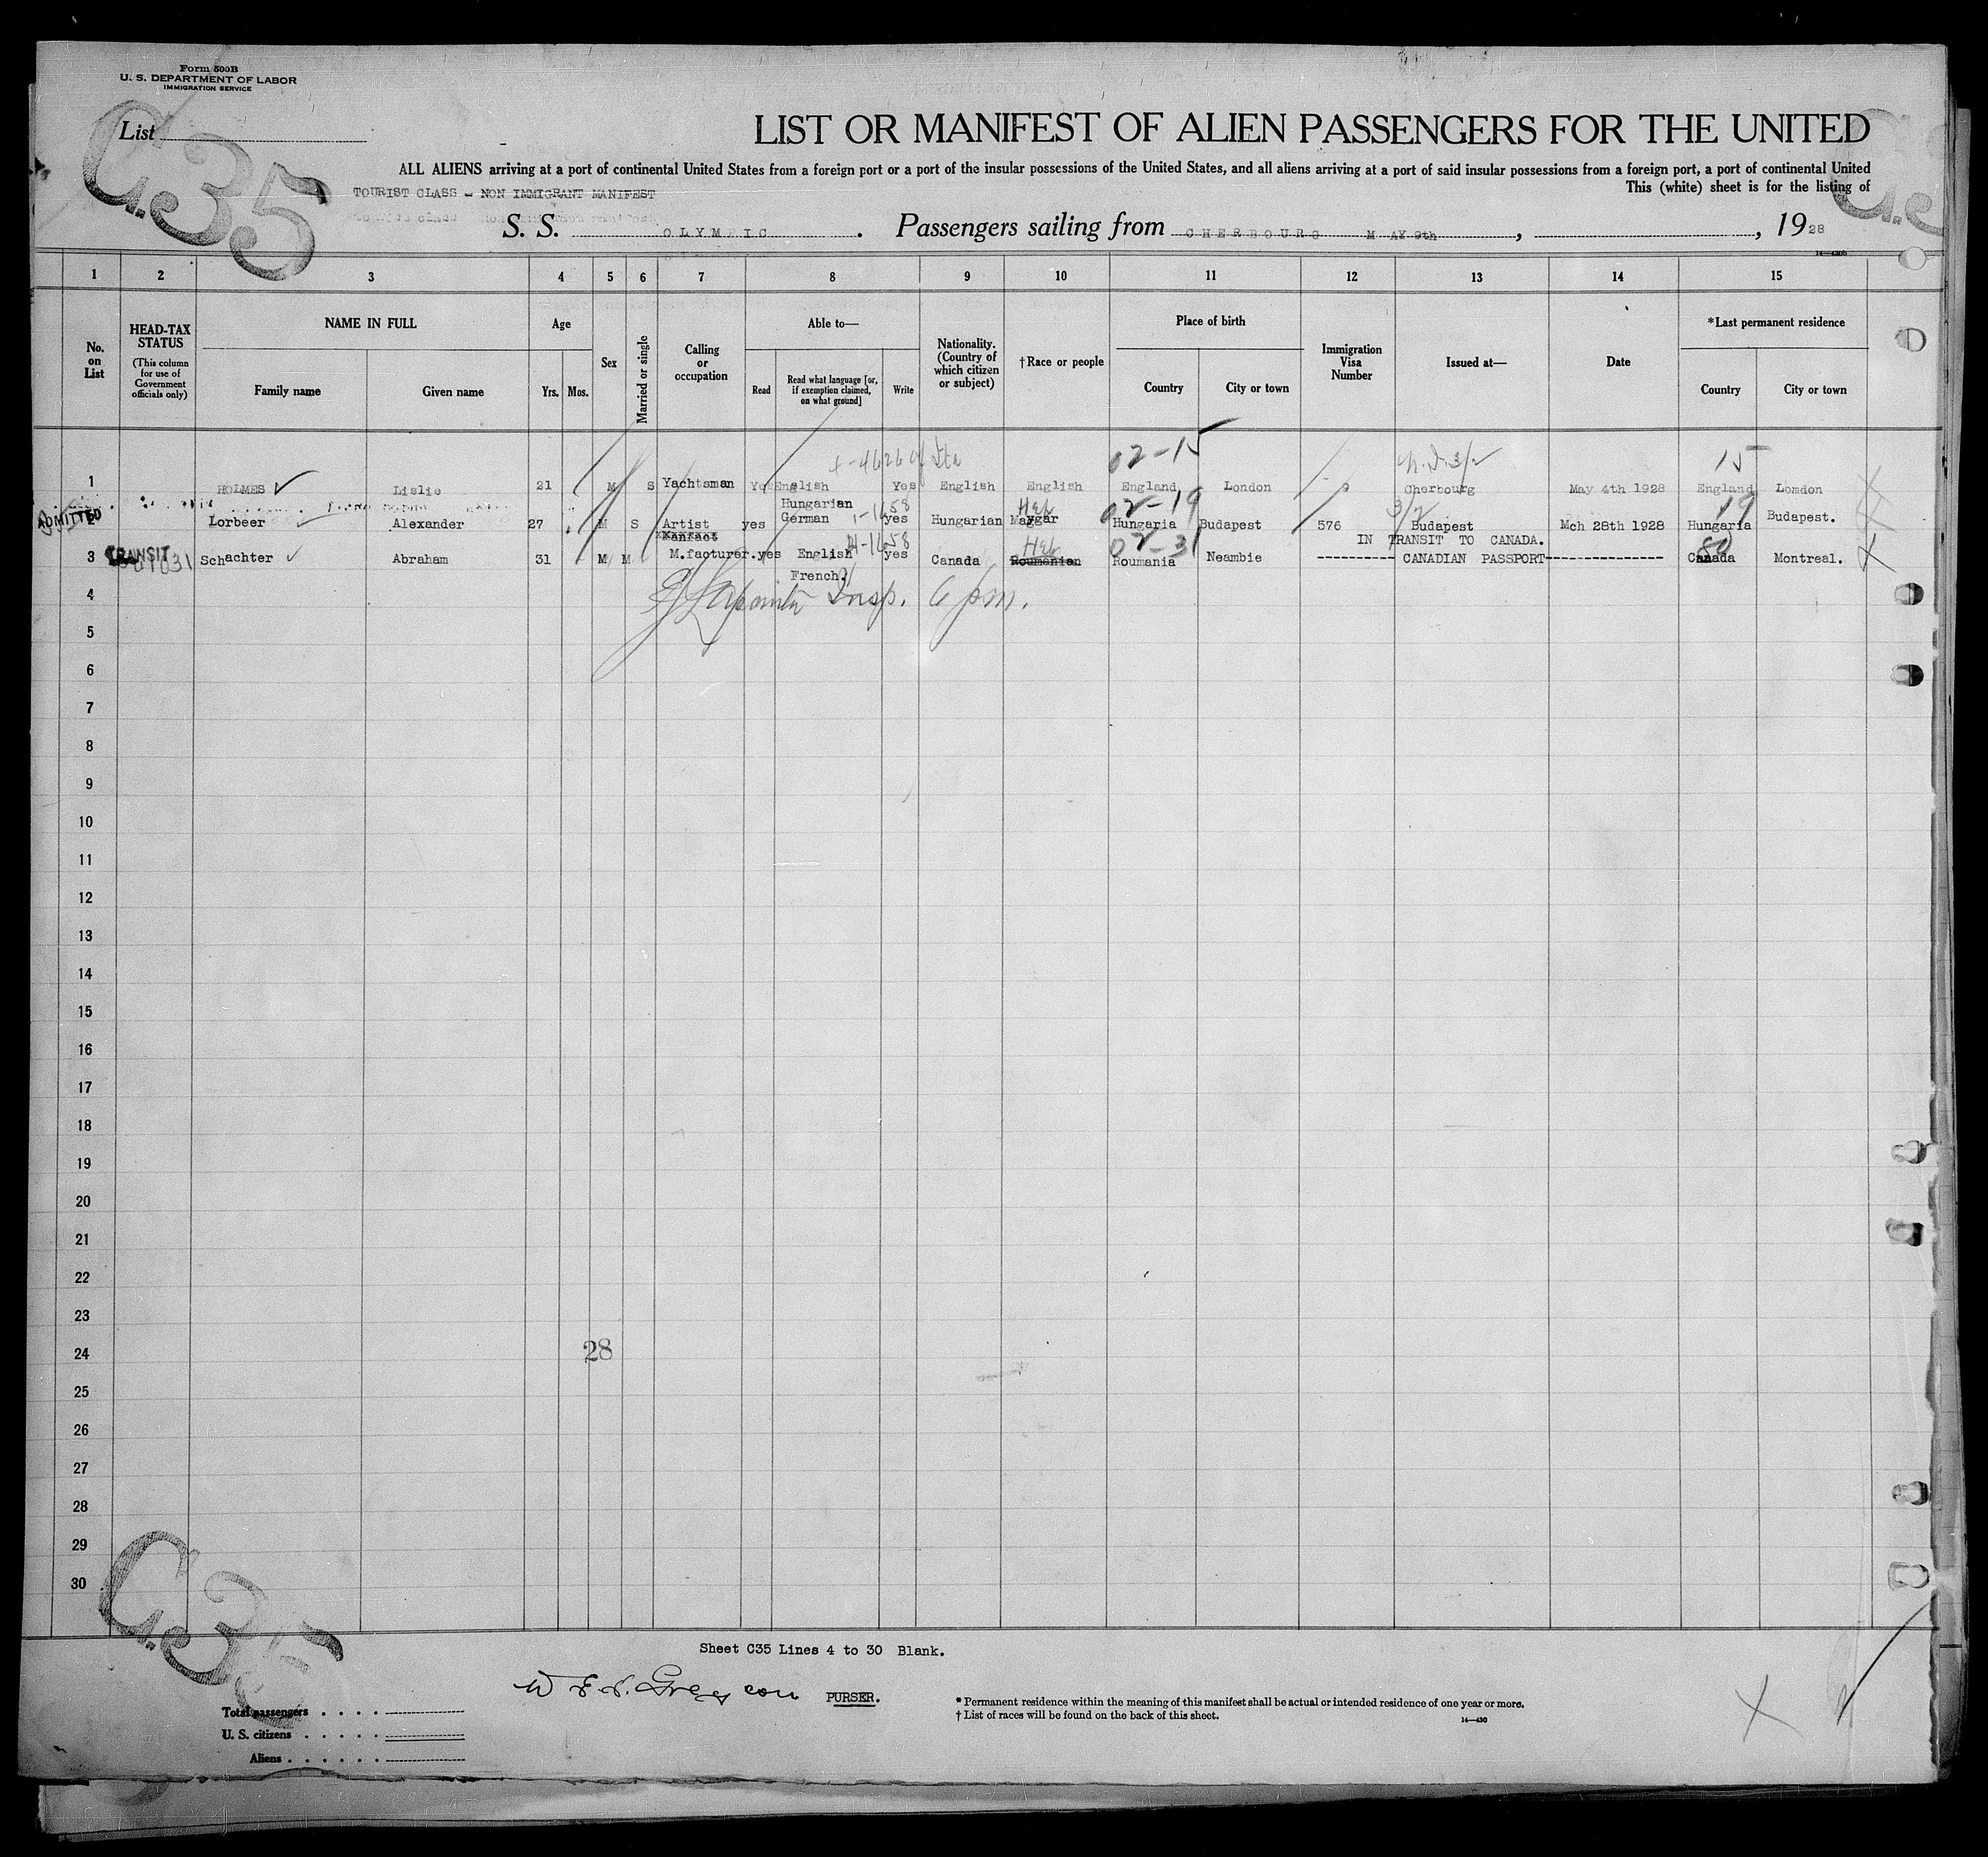 Form 500B
U. S. DEPARTMENT OF LABOR
IMMIGRATION SERVICE
List
C.35
LIST OR MANIFEST OF ALIEN PASSENGERS FOR THE UNITED
ALL ALIENS arriving at a port of continental United States from a foreign port or a port of the insular possessions of the United States, and all aliens arriving at a port of said insular possessions from a foreign port, a port of continental United
TOURIST CLASS - NON IMMIGRANT MANIFEST
This (white) sheet is for the listing of
S. S. OLYMPIC. Passengers sailing from CHERBOURG MAY 9th, , 1928
1 2 3 4 5 6 7 8 9 10 11 12 13 14 15
No. on List
HEAD-TAX STATUS
(This column for use of Government officials only)
NAME IN FULL
Family name Given name
Age
Yrs. Mos.
Sex
Married or single
Calling or occupation
Able to—
Read
Read what language [or, if exemption claimed, on what ground]
Write
Nationality. (Country of which citizen or subject)
†Race or people
Place of birth
Country City or town
Immigration Visa Number
Issued at—
Date
*Last permanent residence
Country City or town
02-15 15
1 HOLMES Lislie 21 M S Yachtsman Yes English Yes English English England London Cherbourg May 4th 1928 England London
ADMITTED
Hungarian 1-1658 Heb 02-19 3/2 19
2 Lorbeer Alexander 27 M S Artist yes German yes Hungarian Magyar Hungaria Budapest 576 Budapest Mch 28th 1928 Hungaria Budapest.
IN TRANSIT TO CANADA.
TRANSIT
Heb 02-31 80
3 Schachter Abraham 31 M M M.facturer. yes English yes Canada Roumanian Roumania Neambie CANADIAN PASSPORT Canada Montreal.
French.
4 Insp. 6 pm.
5
6
7
8
9
10
11
12
13
14
15
16
17
18
19
20
21
22
23
24 28
25
26
27
28
29
30
C.35
Sheet C35 Lines 4 to 30 Blank.
PURSER.
Total passengers
U. S. citizens
Aliens
* Permanent residence within the meaning of this manifest shall be actual or intended residence of one year or more.
† List of races will be found on the back of this sheet.
14—430